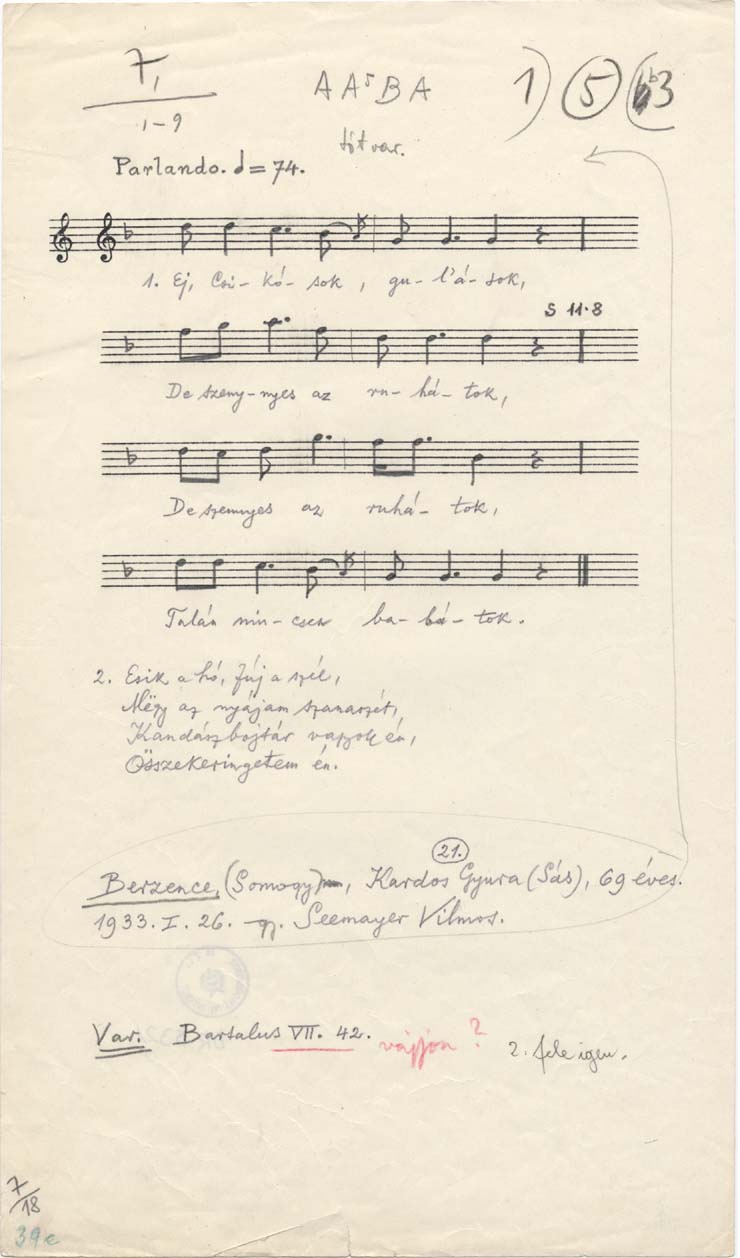 7, AA⁵BA 1) (5) (b3
1-9
tót var.
Parlando. = 74.
1. Ej, Csi-kó-sok, gu-l'á-sok,
S 11.8
De szeny-nyes az ru-há-tok,
De szennyes az ruhá-tok,
Talán nin-csen ba-bá-tok.
2. Esik a hó, fúj a szél,
Mëgy az nyájam szanaszét,
Kandászbojtár vagyok én,
Összekeringetem én.
21.
Berzence, (Somogy), Kardos Gyura (Sás), 69 éves.
1933. I. 26. gy. Seemayer Vilmos.
Var. Bartalus VII. 42. vajjon? 2. fele igen.
7/18
39e